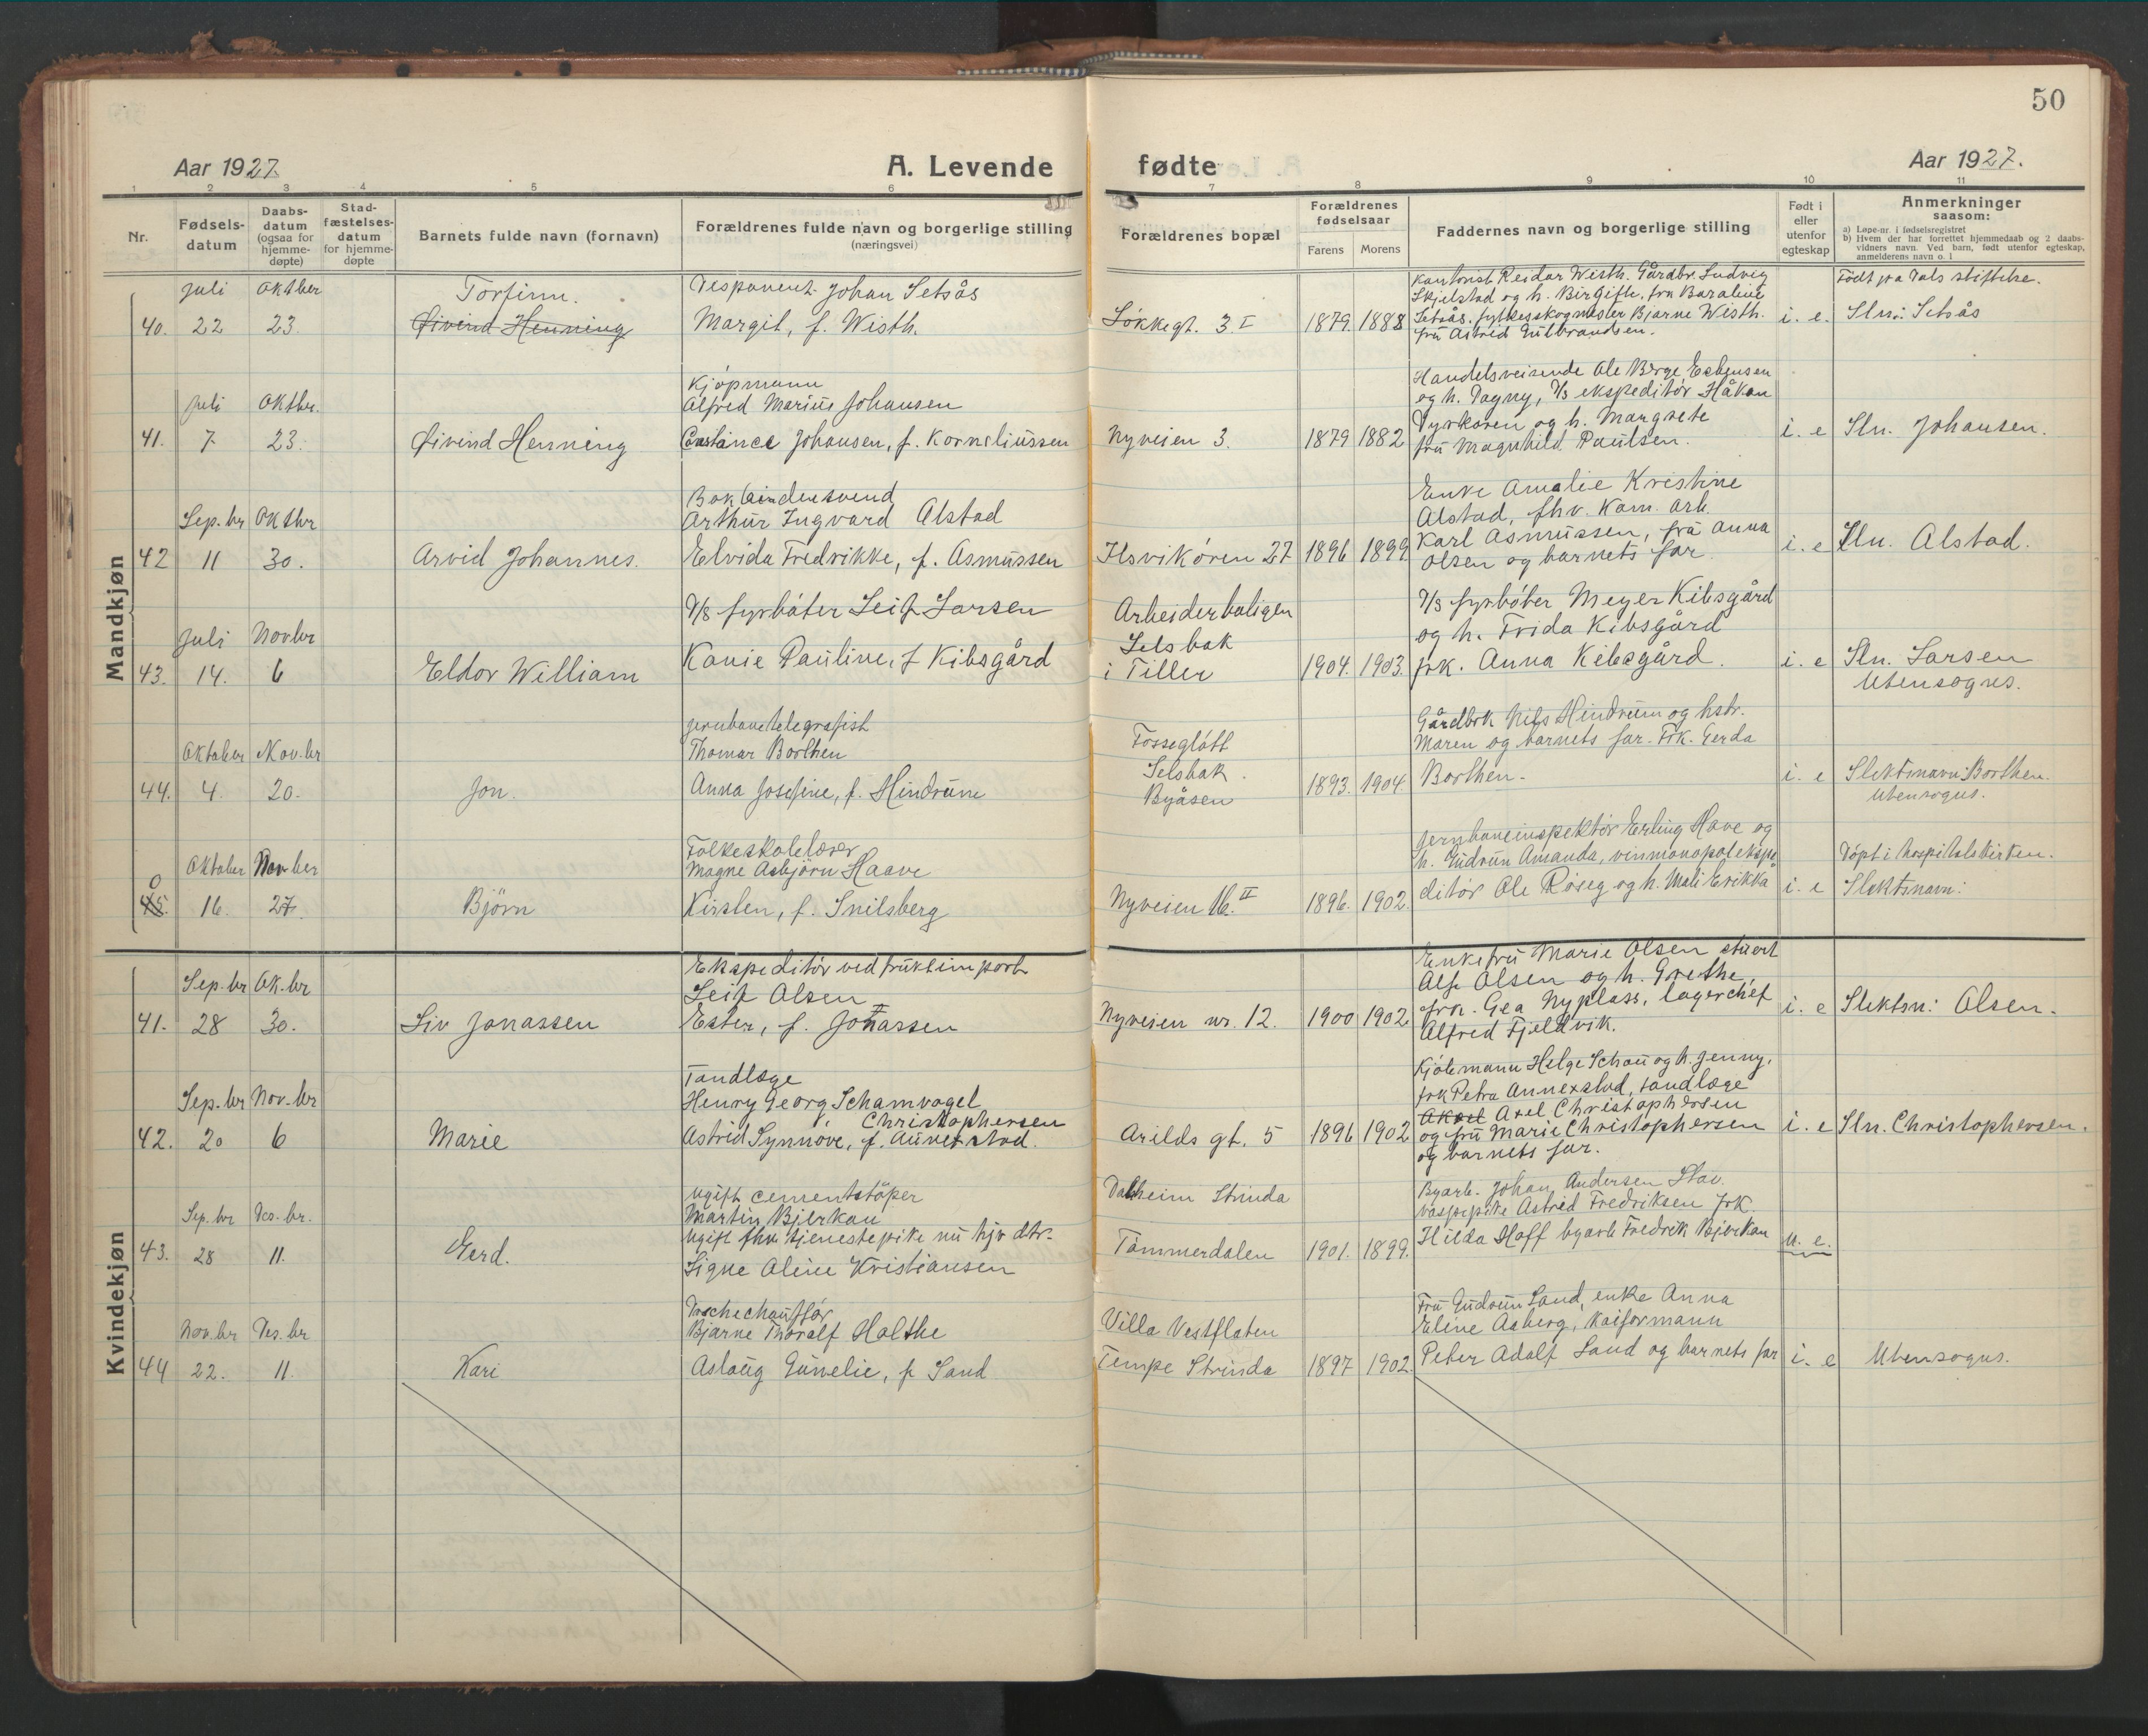 50
Aar 1927.
A. Levende
fødte
Aar 1927.
1 2 3 4 5 6 7 8 9 10 11
Nr.
Fødsels-
datum
Daabs-
datum
(ogsaa for
hjemme-
døpte)
Stad-
fæstelses-
datum
for hjemme-
døpte
Barnets fulde navn (fornavn)
Forældrenes fulde navn og borgerlige stilling
(næringsvei)
Forældrenes bopæl
Forældrenes
fødselsaar
Farens Morens
Faddernes navn og borgerlige stilling
Født i
eller
utenfor
egteskap
Anmerkninger
saasom:
a) Løpe-nr. i fødselsregistret
b) Hvem der har forrettet hjemmedaab og 2 daabs-
vidners navn. Ved barn, født utenfor egteskap,
anmelderens navn o. l
Mandkjøn
40.
Juli
22
Oktber
23.
Torfinn.
Øivind Henning
Disponent Johan Setsås
Margit, f. Wisth.
Løkkegt. 3 I
1879. 1888
Kantorist Reidar Wisth. Gårdbr Ludvig
Skjelstad og h. Birgitte, fru Baraline
Setsås, fylkesskogmester Bjarne Wisth.
fru Astrid Gulbrandsen.
i. e.
Født paa Dals stiftelse.
Sln: Setsås
41.
Juli
7
Oktber.
23.
Øivind Henning
Kjøpmann
Alfred Marius Johansen
Constance Johansen, f. Korneliussen
Nyveien 3.
1879 1882
Handelsreisende Ole Berge Esbensen
og h. Dagny, D/s ekspeditør Håkon
Dyrkoren og h. Margrete
fru Magnhild Paulsen.
i. e
Sln. Johansen.
42
Sep.br
11
Oktbr
30.
Arvid Johannes.
Bokbindersvend
Arthur Ingvard Alstad
Elvida Fredrikke, f. Asmussen
Ilsvikøren 27
1896 1899
Enke Amalie Kristine
Alstad, fhv. Kom. arb.
Karl Asmussen, fru Anna
Olsen og barnets far
i. e
Sln. Alstad.
43.
Juli
14.
Novbr
6
Eldor William
D/s fyrbøter Leif Larsen
Kanie Pauline, f Kibsgård
Arbeiderboligen
Selsbak
i Tiller
1904. 1903.
D/s fyrbøter Meyer Kibsgård
og h. Frida Kibsgård
frk. Anna Kibsgård.
i. e
Sln. Larsen
Utensogns.
44.
Oktober
4.
Nov.br
20.
Jon.
Jernbanetelegrafist
Thomas Borthen
Anna Josefine, f. Hindrum
Fosseglött
Selsbak.
Byåsen
1893. 1904.
Gårdbrk Nils Hindrum og hstr.
Maren og barnets far. Frk. Gerda
Borthen.
i. e
Slektsnavn: Borthen.
Utensogns.
0
45.
Oktober
16.
Novber
27.
Björn
Folkeskolelærer
Magne Asbjörn Haave
Kirsten, f. Snilsberg
Nyveien 16. II
1896. 1902.
Jernbaneinspektør Erling Have og
h. Gudrun Amanda, vinmonopolekspe
ditör Ole Röseg og h. Mali Erikka
i. e
Döpt i Hospitalskirken.
Slektsnavn:
Kvindekjøn
41.
Sep.br
28
Ok.br
30.
Liv Jonassen
Ekspeditör ved fruktimport
Leif Olsen
Ester, f. Jonassen
Nyveien nr. 12.
1900 1902
Enkefru Marie Olsen stuert
Alf Olsen og h. Grethe,
frk. Gea Nyplass, lagerchef
Alfred Fjeldvik.
i. e
Slektsn: Olsen.
42.
Sep.br
20
Nov.br
6
Marie
Tandlæge
Henry Georg Schamvogel
Christophersen
Astrid Synnöve, f. Aunet stad.
Arilds gt. 5
1896 1902
Kjöbmann Helge Schou og h. Jenny,
frk Petra Annexstad, tandlæge
Aksel Axel Christophersen
og fru Marie Christophersen
og barnets far.
i. e
Sln. Christophersen.
43.
Sep.br
28
Des.br.
11.
Gerd.
Ugift cementstöper
Martin Bjerkan
Ugift fhv. tjenestepike nu hjv dtr.
Signe Aline Kristiansen
Dalheim Strinda
Tömmerdalen
1901. 1899.
Byarb. Johan Andersen Stav.
Astrid Fredriksen frk.
Hilda Hoff byarb Fredrik Bjerkan
u. e.
44
Nov.br
22.
Des.br
11.
Kari
Droschechauffør
Bjarne Thoralf Holthe
Aslaug Gunelie, f Sand
Villa Vestflaten
Tempe Strinda
1897 1902.
Fru Gudrun Sand, enke Anna
Eline Aaberg, Kaiformann
Peter Adolf Sand og barnets far
i. e
Utensogns.